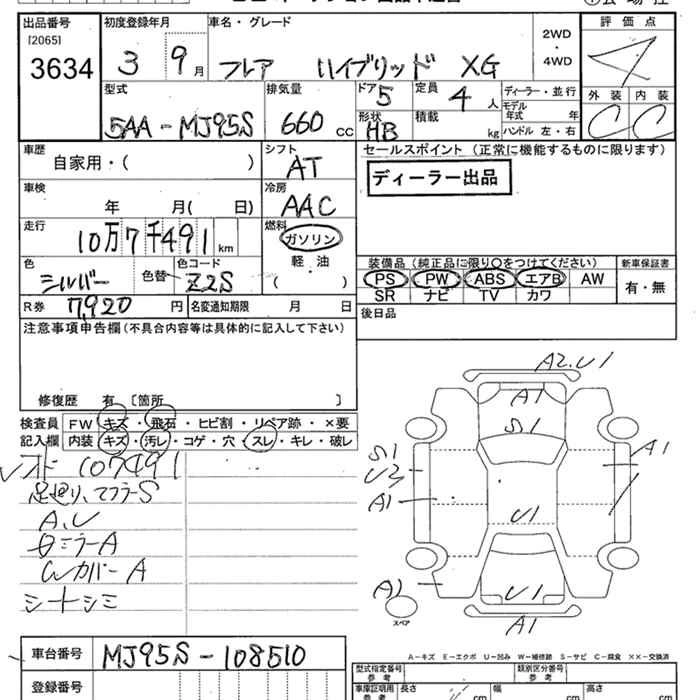 出品番号 初度登録年月 車名・グレード 評価点
[2065]
3634
3 9月 フレア ハイブリッド XG 2WD・4WD 4
型式 排気量 ドア 定員 ディーラー・並行 外装 内装
5AA-MJ95S 660 cc 5 4人 モデル年式 年 C C
形状 積載 ハンドル 左・右
HB kg
車歴 シフト セールスポイント (正常に機能するものに限ります)
自家用・( ) AT
ディーラー出品
車検 冷房
年 月( 日) AAC
走行 燃料
10万7千491km ガソリン
軽・油
( )
色 色替 色コード
シルバー Z2S
装備品(純正品に限り○をつけてください) 新車保証書
PS PW ABS エアB AW 有・無
SR ナビ TV カワ
R券 7,920円 名変通知期限 月 日
後日品
注意事項申告欄(不具合内容等は具体的に記入して下さい)
修復歴 有 〔箇所 〕
検査員 FW キズ・飛石・ヒビ割・リペア跡・×要
記入欄 内装 キズ・汚レ・コゲ・穴・スレ・キレ・破レ
107491
足廻り、マフラーS
A、U
ミラーA
WカバーA
シートシミ
A2.U1
A1
S1
S1
U3
A1
A1
U1
A2
U1
A1
スペア
A-キズ E-エクボ U-凹み W-補修跡 S-サビ C-腐食 ××-交換済
車台番号 MJ95S-108510
登録番号
型式指定番号 参考 類別区分番号 参考
車庫証明用 参考 長さ cm 幅 cm 高さ cm